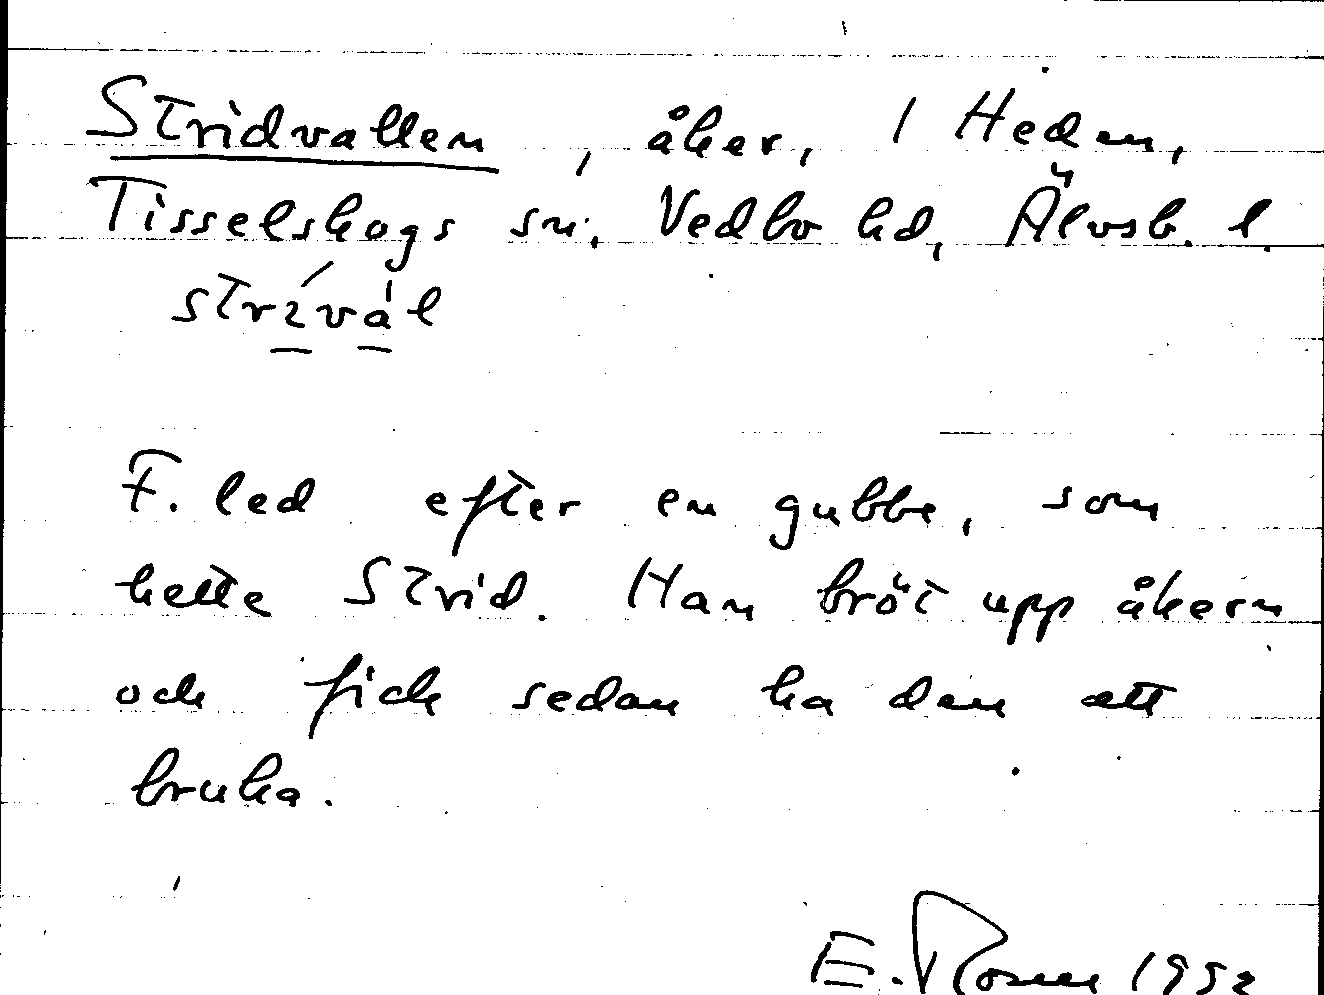 Stridvallen, åker, 1 Heden,
Tisselskogs sn, Vedbo hd, Älvsb. l.
strival
F. led efter en gubbe, som
hette Strid. Han bröt upp åkern
och fick sedan ha den att
bruka.
E. Rosell 1952